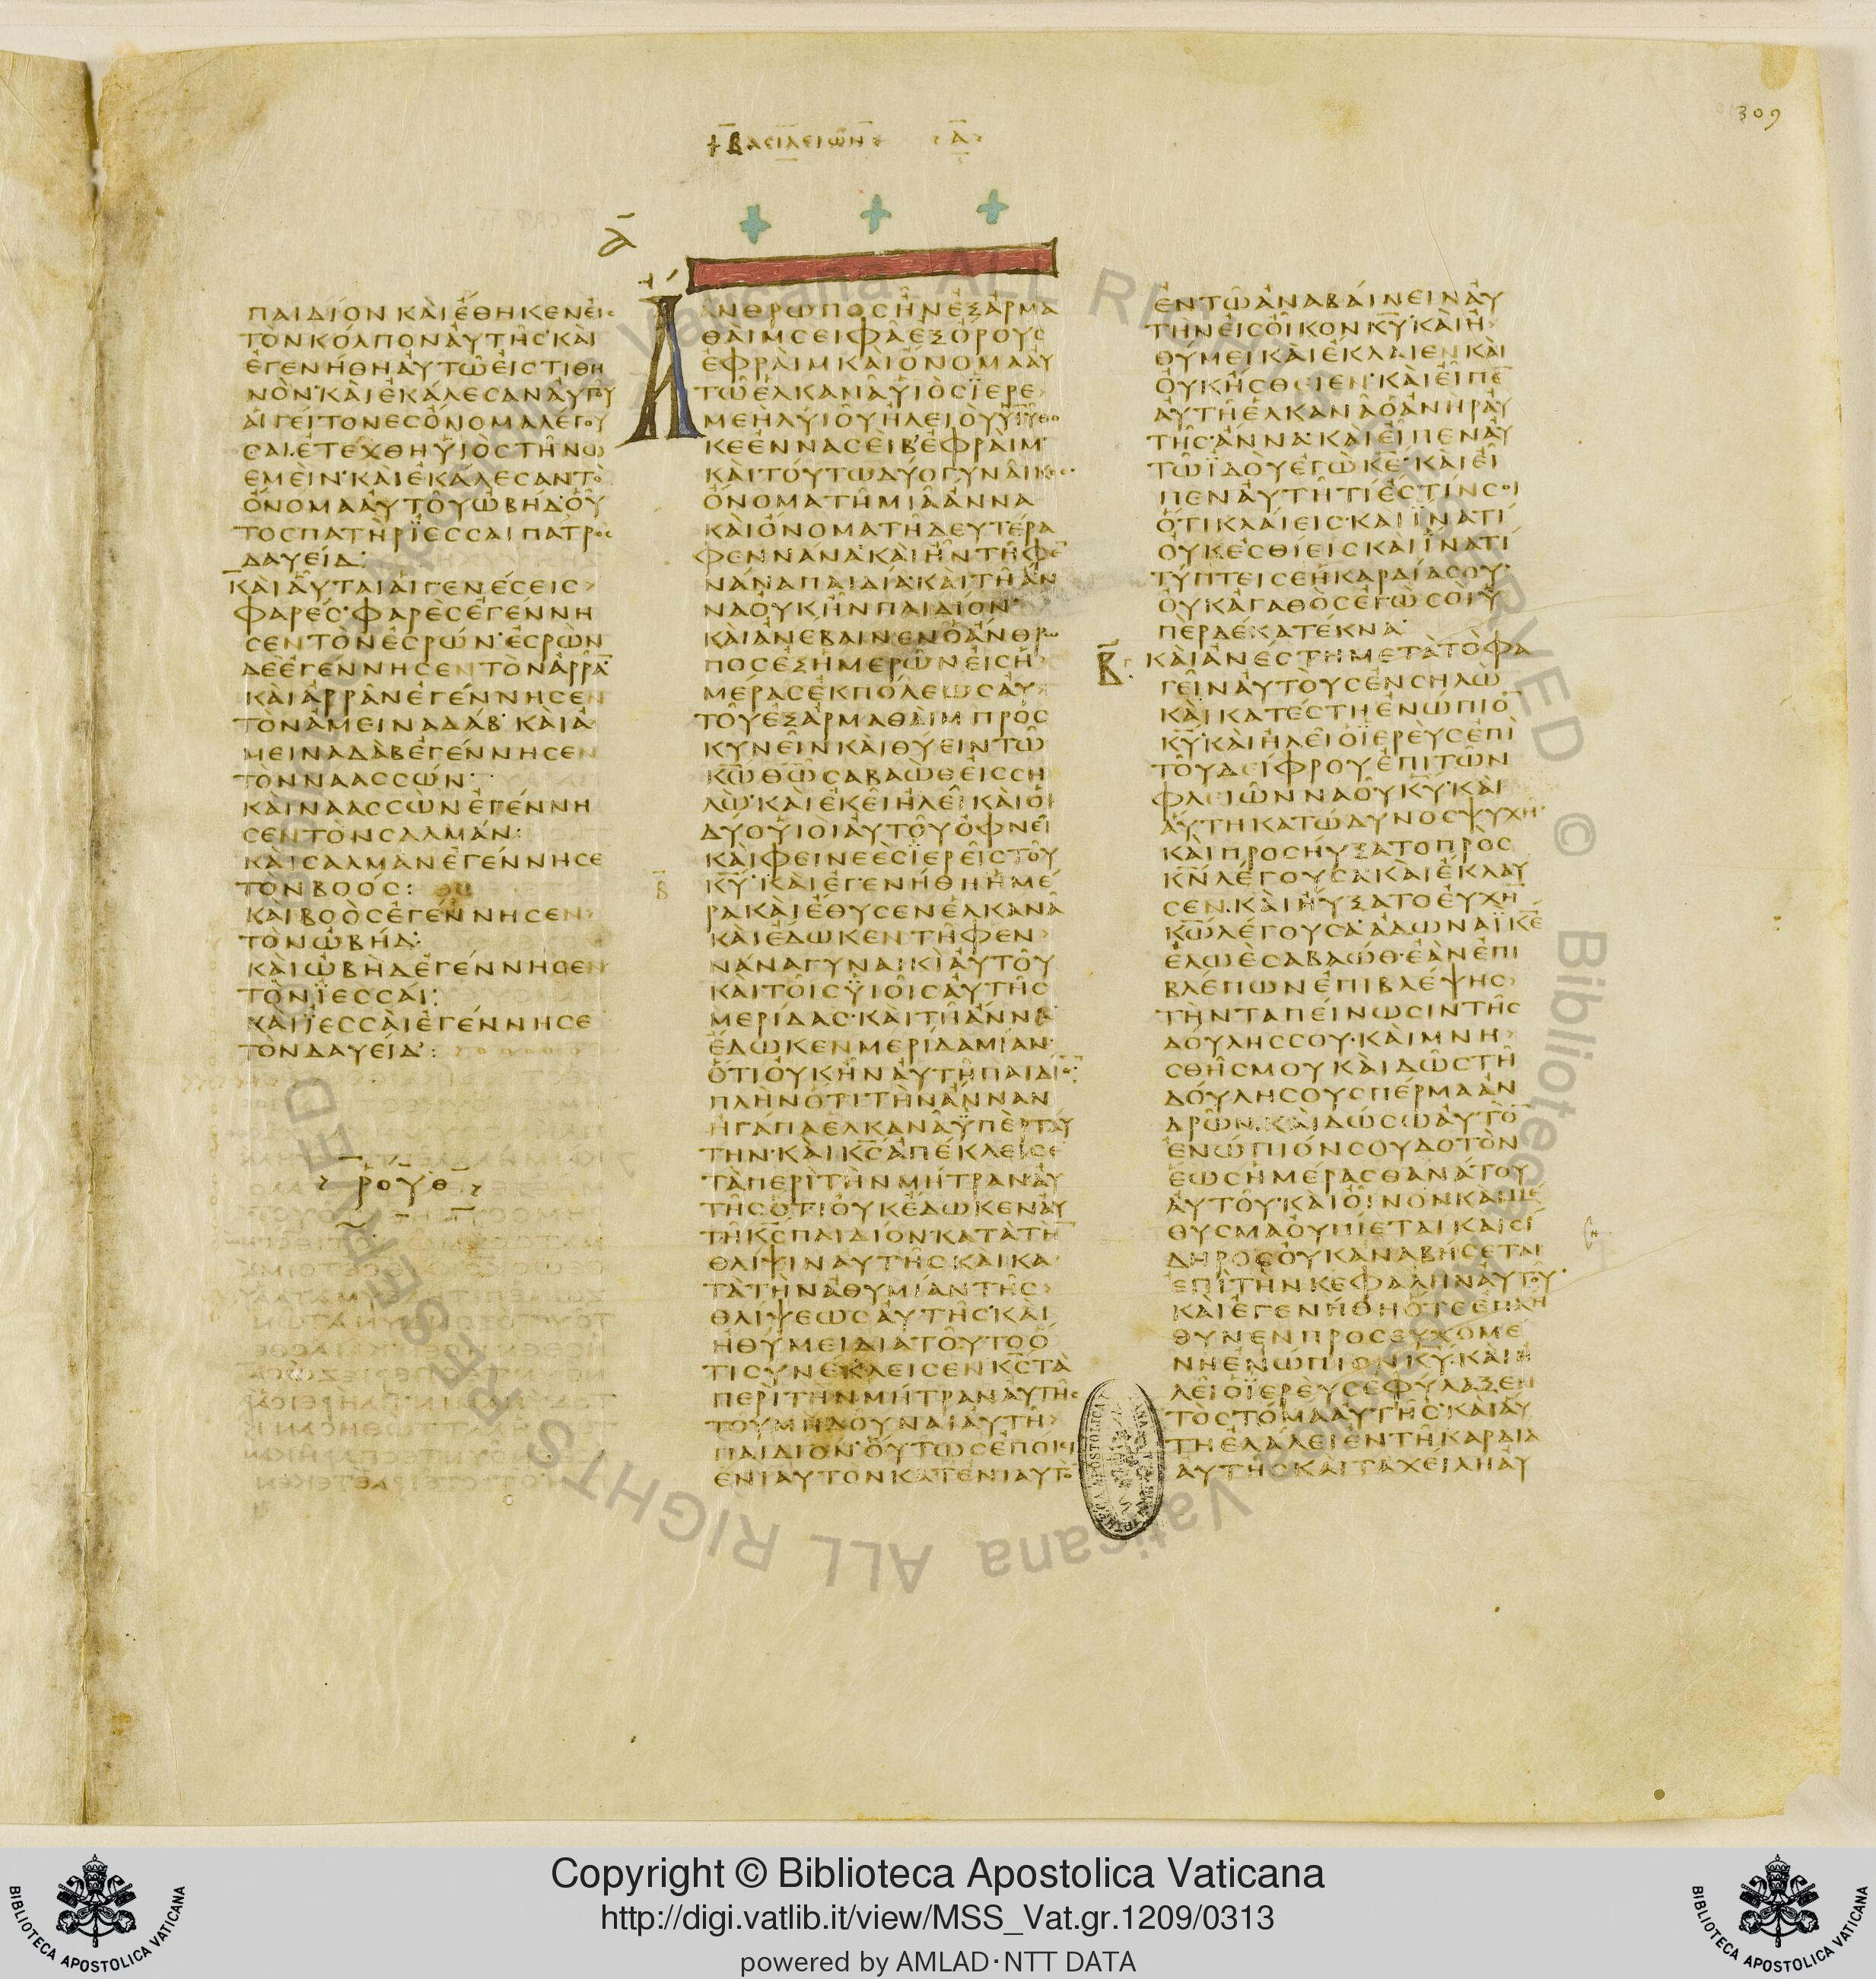 309
ΒΑCΙΛΕΙΩΝ Α
Α
ΠΑΙΔΙΟΝ ΚΑΙ ΕΘΗΚΕΝ ΕΙC
ΤΟΝ ΚΟΛΠΟΝ ΑΥΤΗC· ΚΑΙ
ΕΓΕΝΗΘΗ ΑΥΤΩ ΕΙC ΤΙΘΗ
ΝΟΝ· ΚΑΙ ΕΚΑΛΕCΑΝ ΑΥΤΟΥ
ΑΙ ΓΕΙΤΟΝΕC ΟΝΟΜΑ ΛΕΓΟΥ
CΑΙ· ΕΤΕΧΘΗ ΥΙΟC ΤΗ ΝΩ
ΕΜΕΙΝ· ΚΑΙ ΕΚΑΛΕCΑΝ ΤΟ
ΟΝΟΜΑ ΑΥΤΟΥ ΩΒΗΔ· ΟΥ
ΤΟC ΠΑΤΗΡ ΙΕCCΑΙ ΠΑΤΡΟC
ΔΑΥΕΙΔ:
ΚΑΙ ΑΥΤΑΙ ΑΙ ΓΕΝΕCΕΙC
ΦΑΡΕC· ΦΑΡΕC ΕΓΕΝΝΗ
CΕΝ ΤΟΝ ΕCΡΩΝ· ΕCΡΩΝ
ΔΕ ΕΓΕΝΝΗCΕΝ ΤΟΝ ΑΡΡΑ̅
ΚΑΙ ΑΡΡΑΝ ΕΓΕΝΝΗCΕΝ
ΤΟΝ ΑΜΕΙΝΑΔΑΒ· ΚΑΙ Α
ΜΕΙΝΑΔΑΒ ΕΓΕΝΝΗCΕΝ
ΤΟΝ ΝΑΑCCΩΝ·
ΚΑΙ ΝΑΑCCΩΝ ΕΓΕΝΝΗ
CΕΝ ΤΟΝ CΑΛΜΑΝ:
ΚΑΙ CΑΛΜΑΝ ΕΓΕΝΝΗCΕ
ΤΟΝ ΒΟΟC:
ΚΑΙ ΒΟΟC ΕΓΕΝΝΗCΕΝ
ΤΟΝ ΩΒΗΔ:
ΚΑΙ ΩΒΗΔ ΕΓΕΝΝΗCΕΝ
ΤΟΝ ΙΕCCΑΙ:
ΚΑΙ ΙΕCCΑΙ ΕΓΕΝΝΗCΕ
ΤΟΝ ΔΑΥΕΙΔ:
ΡΟΥΘ
ΑΝΘΡΩΠΟC ΗΝ ΕΞ ΑΡΜΑ
ΘΑΙΜ CΕΙΦΑ ΕΞ ΟΡΟΥC
ΕΦΡΑΙΜ ΚΑΙ ΟΝΟΜΑ ΑΥ
ΤΩ ΕΛΚΑΝΑ ΥΙΟC ΙΕΡΕ
ΜΕΗΛ ΥΙΟΥ ΗΛΕΙΟΥ ΥΙΟΥ ΘΟ
ΚΕ ΕΝ ΝΑCΕΙΒ ΕΦΡΑΙΜ·
ΚΑΙ ΤΟΥΤΩ ΔΥΟ ΓΥΝΑΙΚΕC·
ΟΝΟΜΑ ΤΗ ΜΙΑ ΑΝΝΑ
ΚΑΙ ΟΝΟΜΑ ΤΗ ΔΕΥΤΕΡΑ
ΦΕΝΝΑΝΑ· ΚΑΙ ΗΝ ΤΗ ΦΕ̅
ΝΑΝΑ ΠΑΙΔΙΑ· ΚΑΙ ΤΗ ΑΝ
ΝΑ ΟΥΚ ΗΝ ΠΑΙΔΙΟΝ·
ΚΑΙ ΑΝΕΒΑΙΝΕΝ Ο ΑΝΘΡΩ
ΠΟC ΕΞ ΗΜΕΡΩΝ ΕΙC Η
ΜΕΡΑC ΕΚ ΠΟΛΕΩC ΑΥ
ΤΟΥ ΕΞ ΑΡΜΑΘΑΙΜ ΠΡΟC
ΚΥΝΕΙΝ ΚΑΙ ΘΥΕΙΝ ΤΩ
Κ̅Ω̅ Θ̅Ω̅ CΑΒΑΩΘ ΕΙC CΗ
ΛΩ· ΚΑΙ ΕΚΕΙ ΗΛΕΙ ΚΑΙ ΟΙ
ΔΥΟ ΥΙΟΙ ΑΥΤΟΥ ΟΦΝΕΙ
ΚΑΙ ΦΕΙΝΕΕC ΙΕΡΕΙC ΤΟΥ
Β
Κ̅Υ̅· ΚΑΙ ΕΓΕΝΗΘΗ ΗΜΕ
ΡΑ ΚΑΙ ΕΘΥCΕΝ ΕΛΚΑΝΑ
ΚΑΙ ΕΔΩΚΕΝ ΤΗ ΦΕΝ
ΝΑΝΑ ΓΥΝΑΙΚΙ ΑΥΤΟΥ
ΚΑΙ ΤΟΙC ΥΙΟΙC ΑΥΤΗC
ΜΕΡΙΔΑC· ΚΑΙ ΤΗ ΑΝΝΑ
ΕΔΩΚΕΝ ΜΕΡΙΔΑ ΜΙΑΝ·
ΟΤΙ ΟΥΚ ΗΝ ΑΥΤΗ ΠΑΙΔΙΟ̅:
ΠΛΗΝ ΟΤΙ ΤΗΝ ΑΝΝΑΝ
ΗΓΑΠΑ ΕΛΚΑΝΑ ΥΠΕΡ ΤΑΥ
ΤΗΝ· ΚΑΙ Κ̅C̅ ΑΠΕΚΛΕΙCΕ
ΤΑ ΠΕΡΙ ΤΗΝ ΜΗΤΡΑΝ ΑΥ
ΤΗC ΟΤΙ ΟΥΚ ΕΔΩΚΕΝ ΑΥ
ΤΗ Κ̅C̅ ΠΑΙΔΙΟΝ· ΚΑΤΑ ΤΗ̅
ΘΛΙΨΙΝ ΑΥΤΗC ΚΑΙ ΚΑ
ΤΑ ΤΗΝ ΑΘΥΜΙΑΝ ΤΗC
ΘΛΙΨΕΩC ΑΥΤΗC· ΚΑΙ
ΗΘΥΜΕΙ ΔΙΑ ΤΟΥΤΟ Ο
ΤΙ CΥΝΕΚΛΕΙCΕΝ Κ̅C̅ ΤΑ
ΠΕΡΙ ΤΗΝ ΜΗΤΡΑΝ ΑΥΤΗC
ΤΟΥ ΜΗ ΔΟΥΝΑΙ ΑΥΤΗ
ΠΑΙΔΙΟΝ· ΟΥΤΩC ΕΠΟΙΕΙ
ΕΝΙΑΥΤΟΝ ΚΑΤ ΕΝΙΑΥΤΟ̅
ΕΝ ΤΩ ΑΝΑΒΑΙΝΕΙΝ ΑΥ
ΤΗΝ ΕΙC ΟΙΚΟΝ Κ̅Υ̅· ΚΑΙ Η
ΘΥΜΕΙ ΚΑΙ ΕΚΛΑΙΕΝ ΚΑΙ
ΟΥΚ ΗCΘΙΕΝ· ΚΑΙ ΕΙΠΕ̅
ΑΥΤΗ ΕΛΚΑΝΑ Ο ΑΝΗΡ ΑΥ
ΤΗC· ΑΝΝΑ· ΚΑΙ ΕΙΠΕΝ ΑΥ
ΤΩ ΙΔΟΥ ΕΓΩ Κ̅Ε̅· ΚΑΙ ΕΙ
ΠΕΝ ΑΥΤΗ ΤΙ ΕCΤΙΝ CΟΙ
ΟΤΙ ΚΛΑΙΕΙC· ΚΑΙ ΙΝΑ ΤΙ
ΟΥΚ ΕCΘΙΕΙC ΚΑΙ ΙΝΑ ΤΙ
ΤΥΠΤΕΙ CΕ Η ΚΑΡΔΙΑ CΟΥ·
ΟΥΚ ΑΓΑΘΟC ΕΓΩ CΟΙ Υ
ΠΕΡ ΔΕΚΑ ΤΕΚΝΑ·
Β
ΚΑΙ ΑΝΕCΤΗ ΜΕΤΑ ΤΟ ΦΑ
ΓΕΙΝ ΑΥΤΟΥC ΕΝ CΗΛΩ
ΚΑΙ ΚΑΤΕCΤΗ ΕΝΩΠΙΟ̅
Κ̅Υ̅· ΚΑΙ ΗΛΕΙ Ο ΙΕΡΕΥC ΕΠΙ
ΤΟΥ ΔΙΦΡΟΥ ΕΠΙ ΤΩΝ
ΦΛΙΩΝ ΝΑΟΥ Κ̅Υ̅· ΚΑΙ
ΑΥΤΗ ΚΑΤΩΔΥΝΟC ΨΥΧΗ
ΚΑΙ ΠΡΟCΗΥΞΑΤΟ ΠΡΟC
Κ̅Ν̅ ΛΕΓΟΥCΑ· ΚΑΙ ΕΚΛΑΥ
CΕΝ· ΚΑΙ ΗΥΞΑΤΟ ΕΥΧΗ̅
Κ̅Ω̅ ΛΕΓΟΥCΑ· ΑΔΩΝΑΙ Κ̅Ε̅
ΕΛΩΕ CΑΒΑΩΘ· ΕΑΝ ΕΠΙ
ΒΛΕΠΩΝ ΕΠΙΒΛΕΨΗC
ΤΗΝ ΤΑΠΕΙΝΩCΙΝ ΤΗC
ΔΟΥΛΗC CΟΥ· ΚΑΙ ΜΝΗ
CΘΗC ΜΟΥ ΚΑΙ ΔΩC ΤΗ
ΔΟΥΛΗ CΟΥ CΠΕΡΜΑ ΑΝ
ΔΡΩΝ· ΚΑΙ ΔΩCΩ ΑΥΤΟ̅
ΕΝΩΠΙΟΝ CΟΥ ΔΟΤΟΝ
ΕΩC ΗΜΕΡΑC ΘΑΝΑΤΟΥ
ΑΥΤΟΥ· ΚΑΙ ΟΙΝΟΝ ΚΑΙ ΜΕ
ΘΥCΜΑ ΟΥ ΠΙΕΤΑΙ ΚΑΙ CΙ
ΔΗΡΟC ΟΥΚ ΑΝΑΒΗCΕΤΑΙ
ΕΠΙ ΤΗΝ ΚΕΦΑΛΗΝ ΑΥΤΟΥ·
ΚΑΙ ΕΓΕΝΗΘΗ ΟΤΕ ΕΠΛΗ
ΘΥΝΕΝ ΠΡΟCΕΥΧΟΜΕ
ΝΗ ΕΝΩΠΙΟΝ Κ̅Υ̅· ΚΑΙ Η
ΛΕΙ Ο ΙΕΡΕΥC ΕΦΥΛΑΞΕΝ
ΤΟ CΤΟΜΑ ΑΥΤΗC· ΚΑΙ ΑΥ
ΤΗ ΕΛΑΛΕΙ ΕΝ ΤΗ ΚΑΡΔΙΑ
ΑΥΤΗC ΚΑΙ ΤΑ ΧΕΙΛΗ ΑΥ
Copyright © Biblioteca Apostolica Vaticana
http://digi.vatlib.it/view/MSS_Vat.gr.1209/0313
powered by AMLAD·NTT DATA
BIBLIOTECA APOSTOLICA VATICANA
BIBLIOTECA APOSTOLICA VATICANA